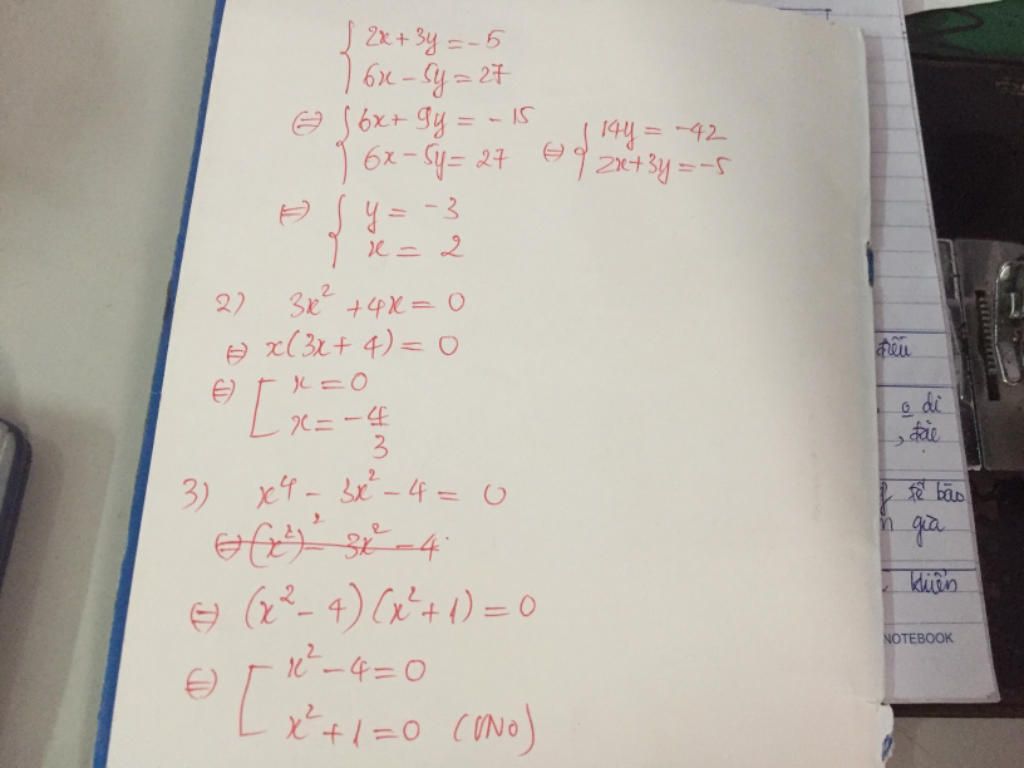 { 2x + 3y = -5
6x - 5y = 27
⇔ { 6x + 9y = -15
6x - 5y = 27
⇔ { 14y = -42
2x + 3y = -5
⇔ { y = -3
x = 2
2) 3x² + 4x = 0
⇔ x(3x + 4) = 0
⇔ [ x = 0
x = -4/3
3) x⁴ - 3x² - 4 = 0
⇔ (x²)² - 3x² - 4
⇔ (x² - 4)(x² + 1) = 0
⇔ [ x² - 4 = 0
x² + 1 = 0 (VNo)
o di
tế bào
già
khiển
NOTEBOOK